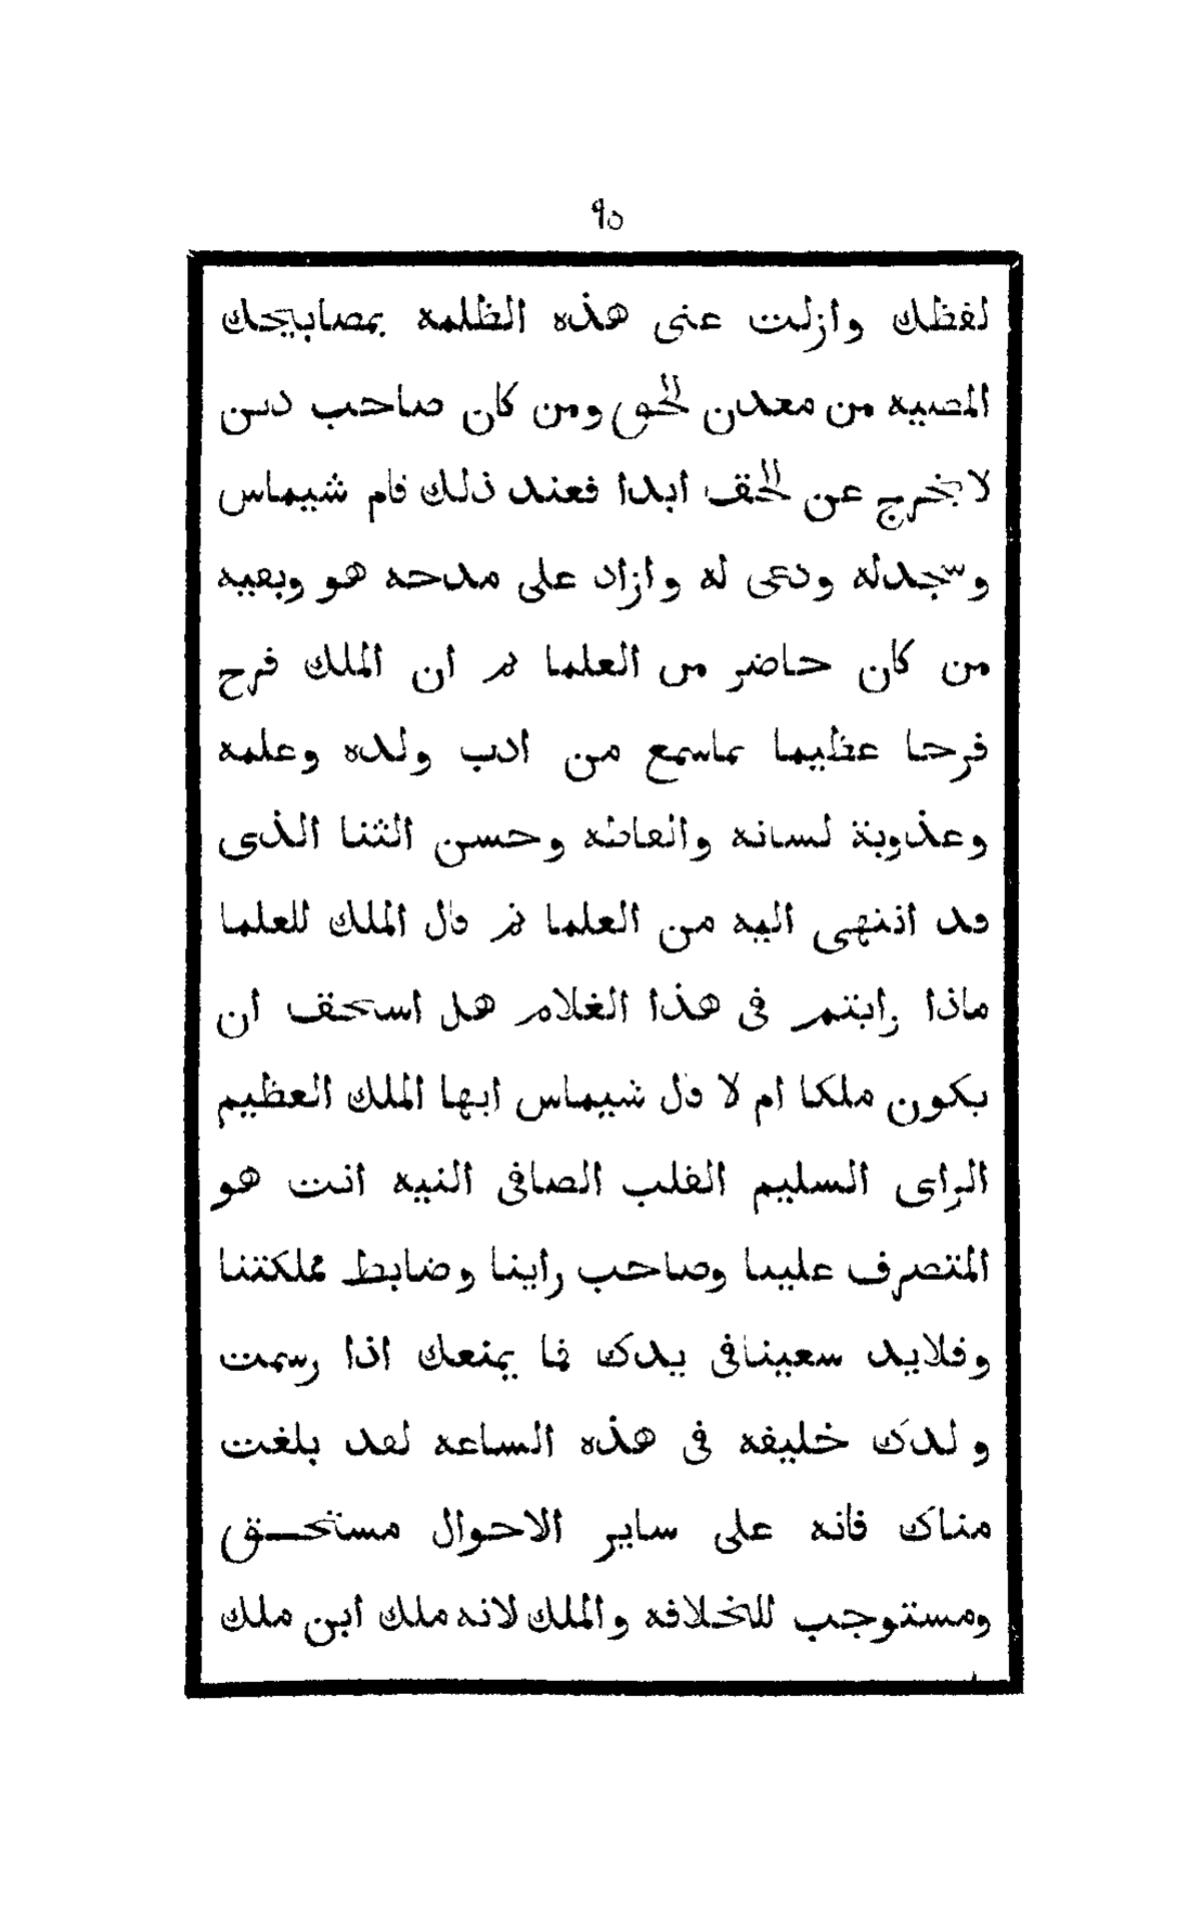 ٩٥
لفظك وازلت عنى هذه الظلمه بمصابيحك
المضيه من معدن الحق ومن كان صاحب دين
لا يخرج عن الحق ابدا فعند ذلك قام شيماس
وسجد له ودعى له وازاد على مدحه هو وبقيه
من كان حاضر من العلما ثم ان الملك فرح
فرحا عظيما بما سمع من ادب ولده وعلمه
وعذوبة لسانه والفاظه وحسن الثنا الذى
قد انتهى اليه من العلما ثم قال الملك للعلما
ماذا رايتم فى هذا الغلام هل اسحق ان
يكون ملكا ام لا قال شيماس ايها الملك العظيم
الراى السليم القلب الصافى النيه انت هو
المتصرف علينا وصاحب راينا وضابط مملكتنا
وقلايد سعينا فى يدك فما يمنعك اذا رسمت
ولدك خليفه فى هذه الساعه لقد بلغت
مناك فانه على ساير الاحوال مستحق
ومستوجب للخلافه والملك لانه ملك ابن ملك